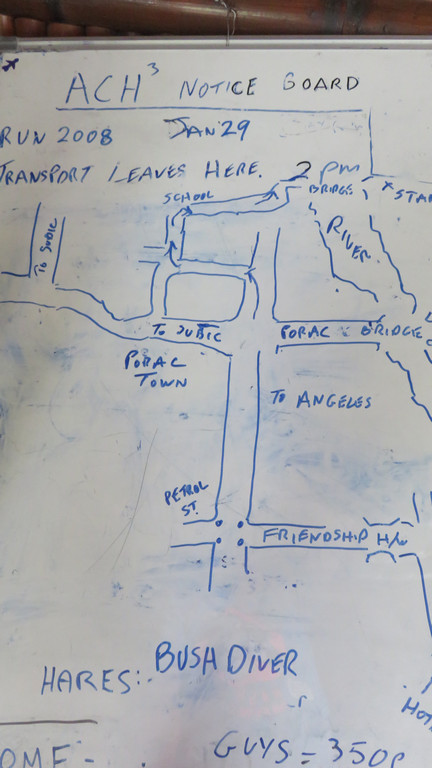 ACH³ NOTICE BOARD
RUN 2008 JAN 29
TRANSPORT LEAVES HERE. 2 pm
SCHOOL
BRIDGE
RIVER
To SUBIC
To SUBIC
PORAC BRIDGE
PORAC
TOWN
To ANGELES
PETROL
ST.
FRIENDSHIP H/W
HARES:- BUSH DIVER
GUYS = 350P